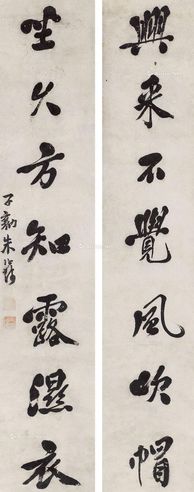 興來不覺風吹帽
坐久方知露濕衣